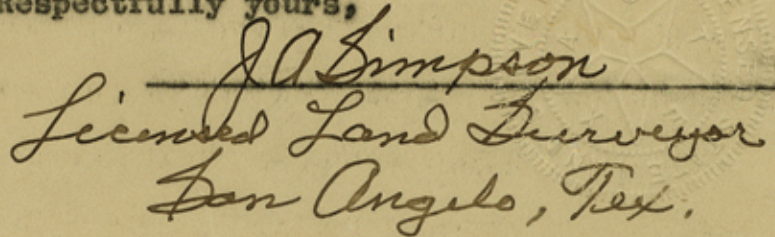 Respectfully yours,
J A Simpson
Licensed Land Surveyor
San Angelo, Tex.